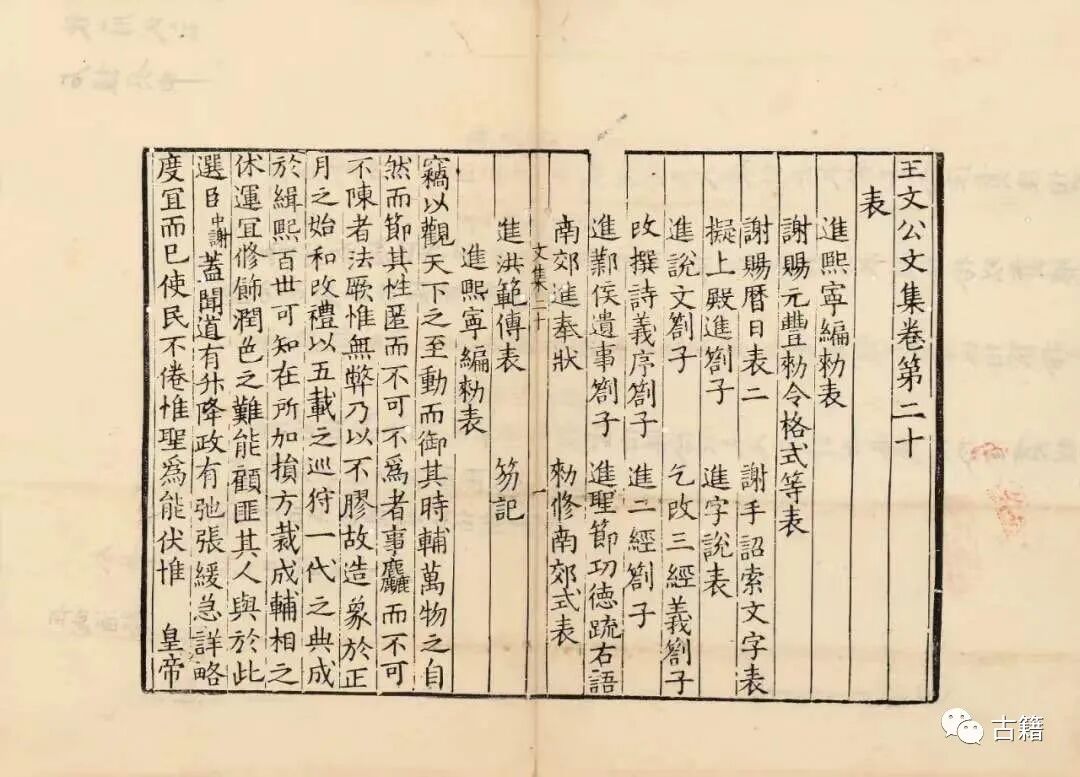 王文公文集卷第二十
表
進熙寧編勑表
謝賜元豐勑令格式等表
謝賜曆日表二 謝手詔索文字表
擬上殿進劄子 進字說表
進說文劄子 乞改三經義劄子
改撰詩義序劄子 進二經劄子
進鄴侯遺事劄子 進聖節功德疏右語
南郊進奉狀 勑修南郊式表
文集二十 一
進洪範傳表 笏記
進熙寧編勑表
竊以觀天下之至動而御其時輔萬物之自
然而節其性匿而不可不爲者事麤而不可
不陳者法歟惟無弊乃以不膠故造象於正
月之始和改禮以五載之巡狩一代之典成
於緝熙百世可知在所加損方裁成輔相之
休運宜修飾潤色之難能顧匪其人與於此
選臣中謝蓋聞道有升降政有弛張緩急詳略
度宜而已使民不倦惟聖爲能伏惟 皇帝
古籍